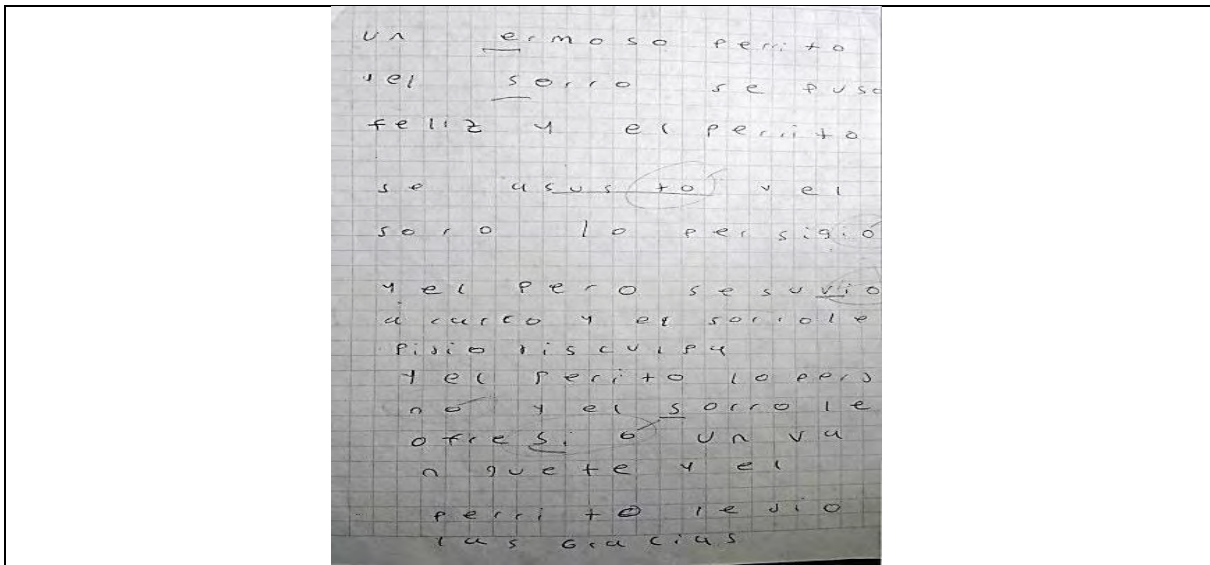 un ermoso perrito
yel sorro se puso
feliz y el perrito
se asusto yel
soro lo persigió
yel pero sesuvio
a carco y el sorrole
pidio disculpa
yel perito lo perd
nó y el sorro le
ofresió un va
nguete y el
perrito le dio
las Gracias